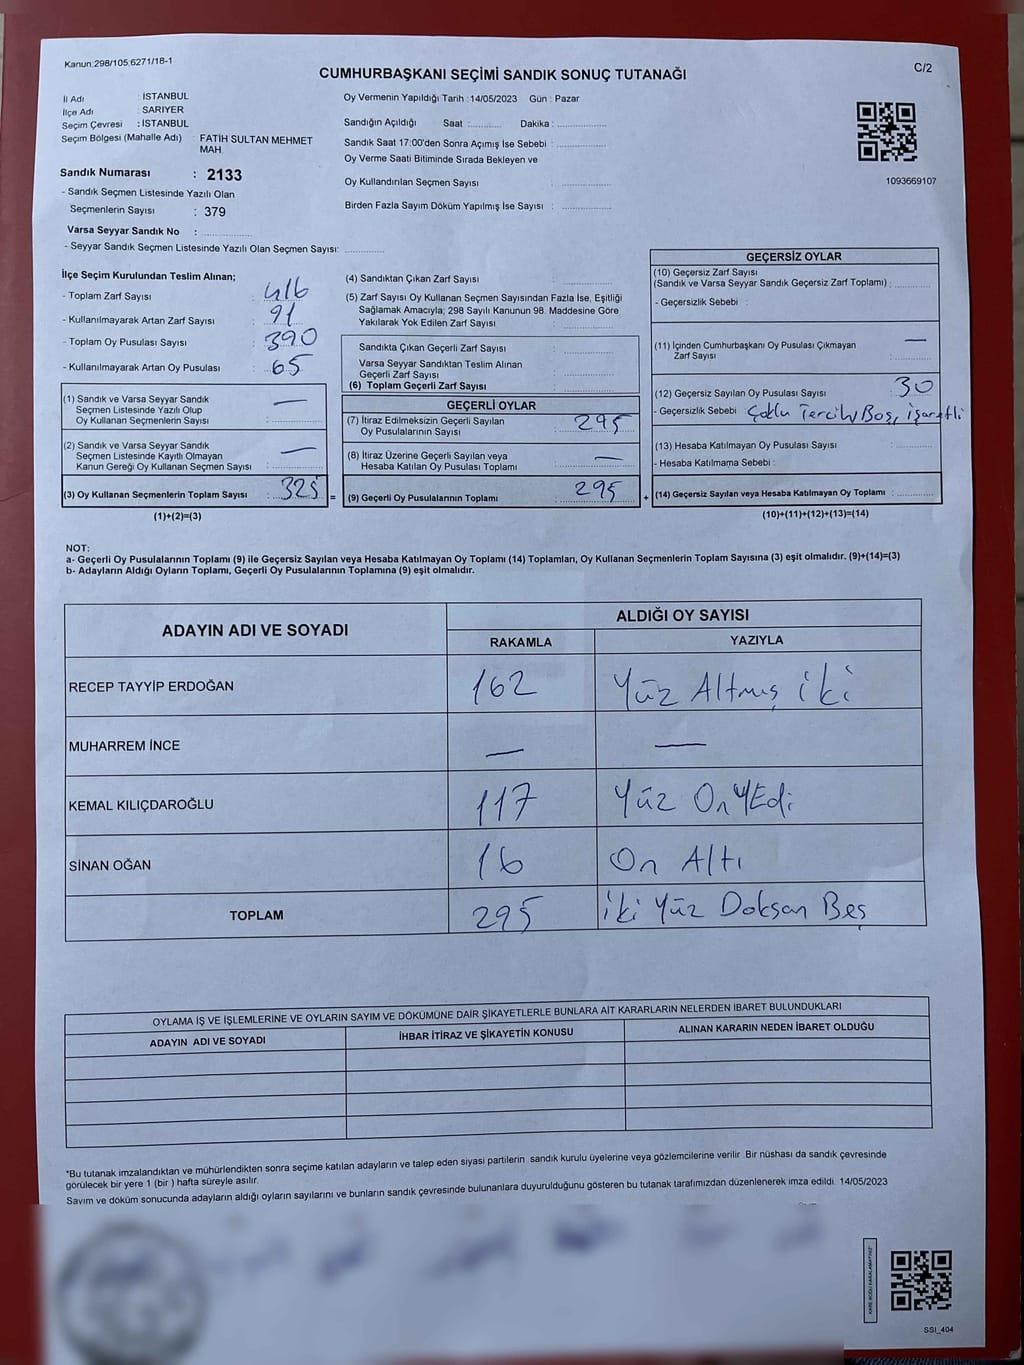 Kanun:298/105,6271/18-1
CUMHURBAŞKANI SEÇİMİ SANDIK SONUÇ TUTANAĞI
C/2
İl Adı : İSTANBUL
İlçe Adı : SARIYER
Seçim Çevresi : İSTANBUL
Seçim Bölgesi (Mahalle Adı) : FATİH SULTAN MEHMET
MAH
Sandık Numarası : 2133
- Sandık Seçmen Listesinde Yazılı Olan
Seçmenlerin Sayısı : 379
Varsa Seyyar Sandık No : ..............
- Seyyar Sandık Seçmen Listesinde Yazılı Olan Seçmen Sayısı: ............
Oy Vermenin Yapıldığı Tarih : 14/05/2023 Gün : Pazar
Sandığın Açıldığı Saat :........... Dakika :................
Sandık Saat 17:00'den Sonra Açımış İse Sebebi :................
Oy Verme Saati Bitiminde Sırada Bekleyen ve
Oy Kullandırılan Seçmen Sayısı : ................
Birden Fazla Sayım Döküm Yapılmış İse Sayısı : ................
1093669107
İlçe Seçim Kurulundan Teslim Alınan;
- Toplam Zarf Sayısı : 416
- Kullanılmayarak Artan Zarf Sayısı : 91
- Toplam Oy Pusulası Sayısı : 390
- Kullanılmayarak Artan Oy Pusulası : 65
(1) Sandık ve Varsa Seyyar Sandık
Seçmen Listesinde Yazılı Olup
Oy Kullanan Seçmenlerin Sayısı : —
(2) Sandık ve Varsa Seyyar Sandık
Seçmen Listesinde Kayıtlı Olmayan
Kanun Gereği Oy Kullanan Seçmen Sayısı : —
(3) Oy Kullanan Seçmenlerin Toplam Sayısı : 325 =
(1)+(2)=(3)
(4) Sandıktan Çıkan Zarf Sayısı : ................
(5) Zarf Sayısı Oy Kullanan Seçmen Sayısından Fazla İse, Eşitliği
Sağlamak Amacıyla; 298 Sayılı Kanunun 98. Maddesine Göre
Yakılarak Yok Edilen Zarf Sayısı : ................
Sandıkta Çıkan Geçerli Zarf Sayısı : ................
Varsa Seyyar Sandıktan Teslim Alınan
Geçerli Zarf Sayısı : ................
(6) Toplam Geçerli Zarf Sayısı : ................
GEÇERLİ OYLAR
(7) İtiraz Edilmeksizin Geçerli Sayılan
Oy Pusulalarının Sayısı : 295
(8) İtiraz Üzerine Geçerli Sayılan veya
Hesaba Katılan Oy Pusulası Toplamı : —
(9) Geçerli Oy Pusulalarının Toplamı : 295 +
GEÇERSİZ OYLAR
(10) Geçersiz Zarf Sayısı
(Sandık ve Varsa Seyyar Sandık Geçersiz Zarf Toplamı) : ............
- Geçersizlik Sebebi :
(11) İçinden Cumhurbaşkanı Oy Pusulası Çıkmayan
Zarf Sayısı : —
(12) Geçersiz Sayılan Oy Pusulası Sayısı : 30
- Geçersizlik Sebebi : Çoklu Tercih, Boş, İşaretli
(13) Hesaba Katılmayan Oy Pusulası Sayısı : ............
- Hesaba Katılmama Sebebi :
(14) Geçersiz Sayılan veya Hesaba Katılmayan Oy Toplamı : ............
(10)+(11)+(12)+(13)=(14)
NOT:
a- Geçerli Oy Pusulalarının Toplamı (9) ile Geçersiz Sayılan veya Hesaba Katılmayan Oy Toplamı (14) Toplamları, Oy Kullanan Seçmenlerin Toplam Sayısına (3) eşit olmalıdır. (9)+(14)=(3)
b- Adayların Aldığı Oyların Toplamı, Geçerli Oy Pusulalarının Toplamına (9) eşit olmalıdır.
ADAYIN ADI VE SOYADI
ALDIĞI OY SAYISI
RAKAMLA YAZIYLA
RECEP TAYYİP ERDOĞAN 162 Yüz Altmış iki
MUHARREM İNCE — —
KEMAL KILIÇDAROĞLU 117 Yüz On YEdi
SİNAN OĞAN 16 On Altı
TOPLAM 295 iki Yüz Doksan Beş
OYLAMA İŞ VE İŞLEMLERİNE VE OYLARIN SAYIM VE DÖKÜMÜNE DAİR ŞİKAYETLERLE BUNLARA AİT KARARLARIN NELERDEN İBARET BULUNDUKLARI
ADAYIN ADI VE SOYADI İHBAR İTİRAZ VE ŞİKAYETİN KONUSU ALINAN KARARIN NEDEN İBARET OLDUĞU
*Bu tutanak imzalandıktan ve mühürlendikten sonra seçime katılan adayların ve talep eden siyasi partilerin sandık kurulu üyelerine veya gözlemcilerine verilir .Bir nüshası da sandık çevresinde
görülecek bir yere 1 (bir ) hafta süreyle asılır.
Sayım ve döküm sonucunda adayların aldığı oyların sayılarını ve bunların sandık çevresinde bulunanlara duyurulduğunu gösteren bu tutanak tarafımızdan düzenlenerek imza edildi. 14/05/2023
SSI_404